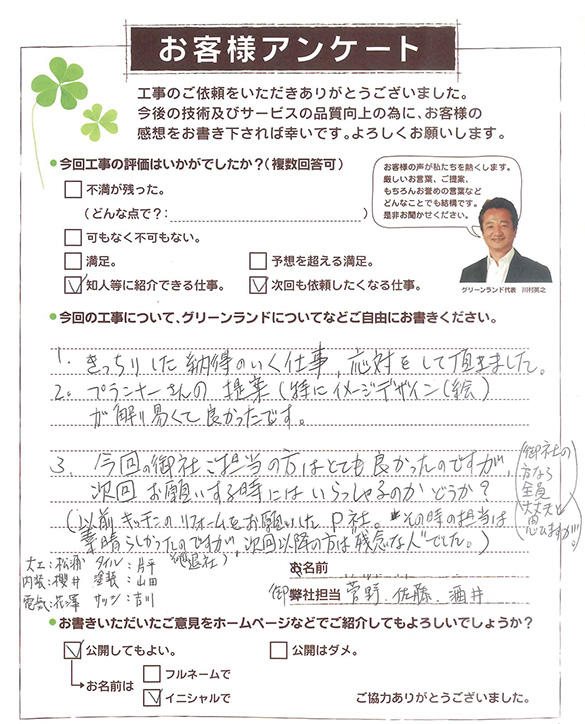 お客様アンケート
工事のご依頼をいただきありがとうございました。
今後の技術及びサービスの品質向上の為に、お客様の
感想をお書き下されば幸いです。よろしくお願いします。
●今回工事の評価はいかがでしたか?(複数回答可)
不満が残った。
(どんな点で?: )
可もなく不可もない。
満足。
予想を超える満足。
知人等に紹介できる仕事。
次回も依頼したくなる仕事。
お客様の声が私たちを熱くします。
厳しいお言葉、ご提案、
もちろんお誉めの言葉など
どんなことでも結構です。
是非お聞かせください。
グリーンランド代表 川村英之
●今回の工事について、グリーンランドについてなどご自由にお書きください。
1. きっちりした納得のいく仕事、応対をして頂きました。
2. プランナーさんの提案(特にイメージデザイン(絵)
が解り易くて良かったです。
3. 今回の御社ご担当の方はとても良かったのですが、
次回お願いする時にはいらっしゃるのかどうか?
(御社の
方なら
全員
大丈夫と
思いますが。)
(以前キッチンのリフォームをお願いしたP社。その時の担当は
素晴らしかったのですが、次回以降の方は残念な人でした。)
大工:松浦 タイル:片平
内装:櫻井 塗装:山田
電気:花澤 サッシ:吉川
お名前
御弊社担当 菅野、佐藤、酒井
●お書きいただいたご意見をホームページなどでご紹介してもよろしいでしょうか?
公開してもよい。
公開はダメ。
お名前は
フルネームで
イニシャルで
ご協力ありがとうございました。